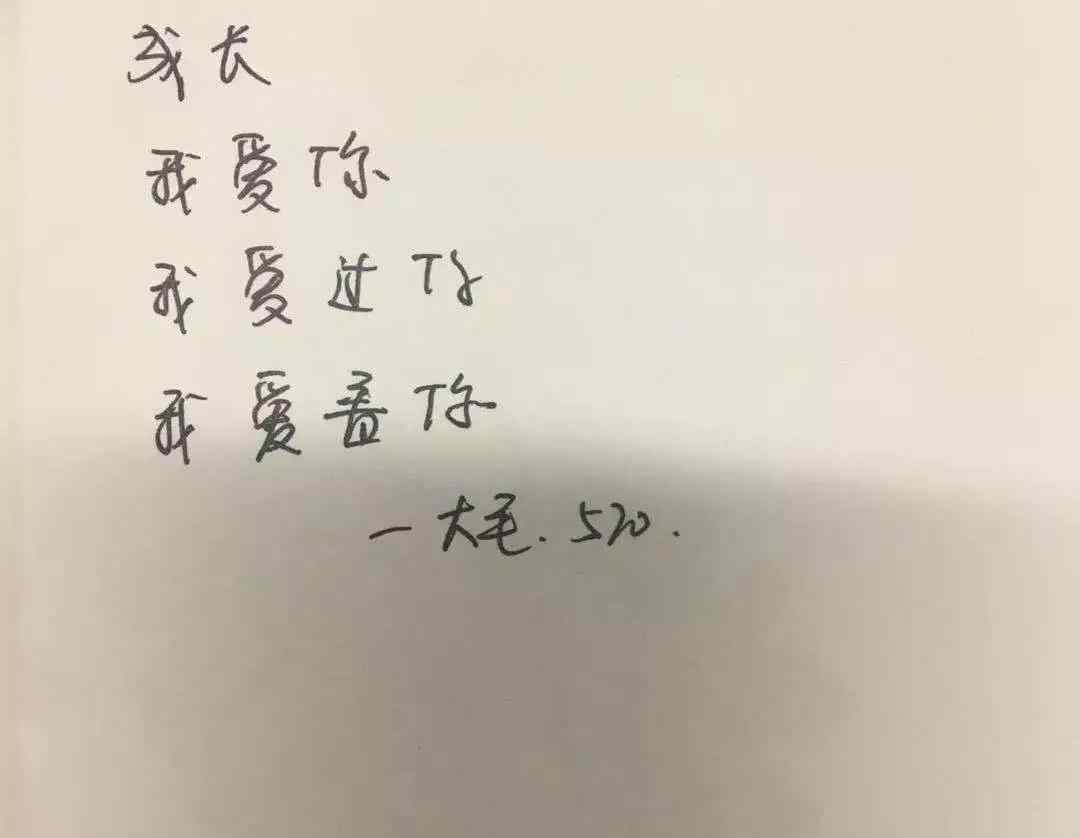 成长
我爱你
我爱过你
我爱着你
—大毛.520.